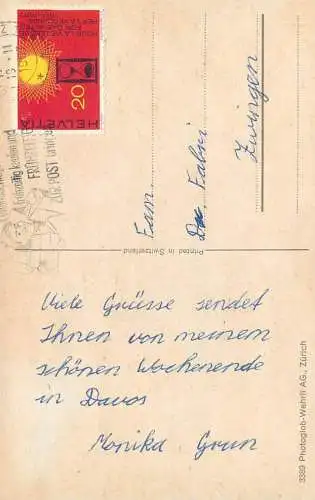 HELVETIA
20
Fam.
Fabri
Zwingen
Printed in Switzerland
Viele Grüsse sendet
Ihnen von meinem
schönen Wochenende
in Davos
Monika Grun
3389 Photoglob-Wehrli AG., Zürich